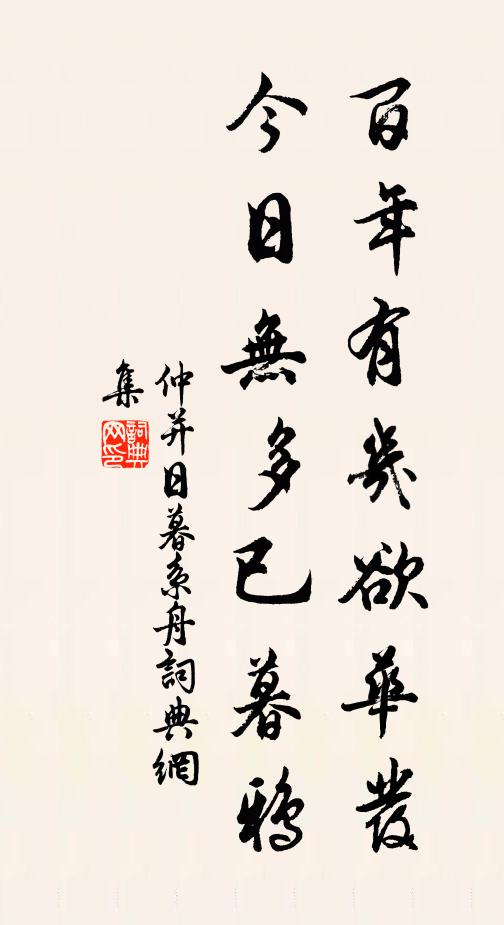 百年有幾欲華發
今日無多已暮鴉
仲并日暮系舟詞典網
集
詞典
网印